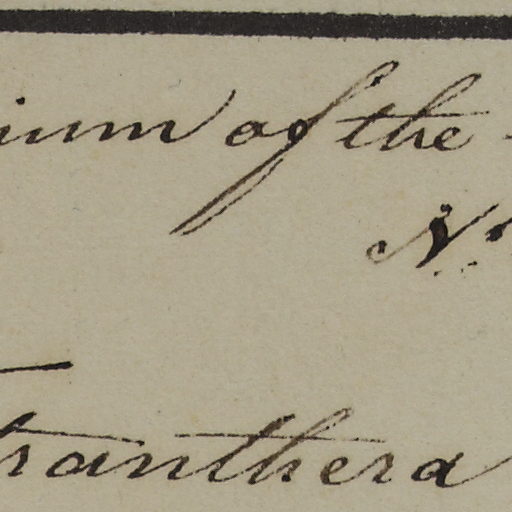 ium of the
No
tranthera